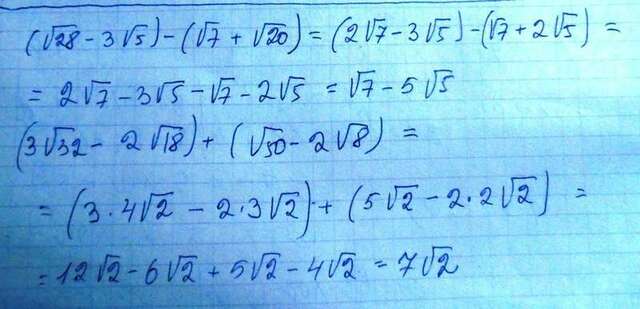 (√28 - 3√5) - (√7 + √20) = (2√7 - 3√5) - (√7 + 2√5) =
= 2√7 - 3√5 - √7 - 2√5 = √7 - 5√5
(3√32 - 2√18) + (√50 - 2√8) =
= (3·4√2 - 2·3√2) + (5√2 - 2·2√2) =
= 12√2 - 6√2 + 5√2 - 4√2 = 7√2